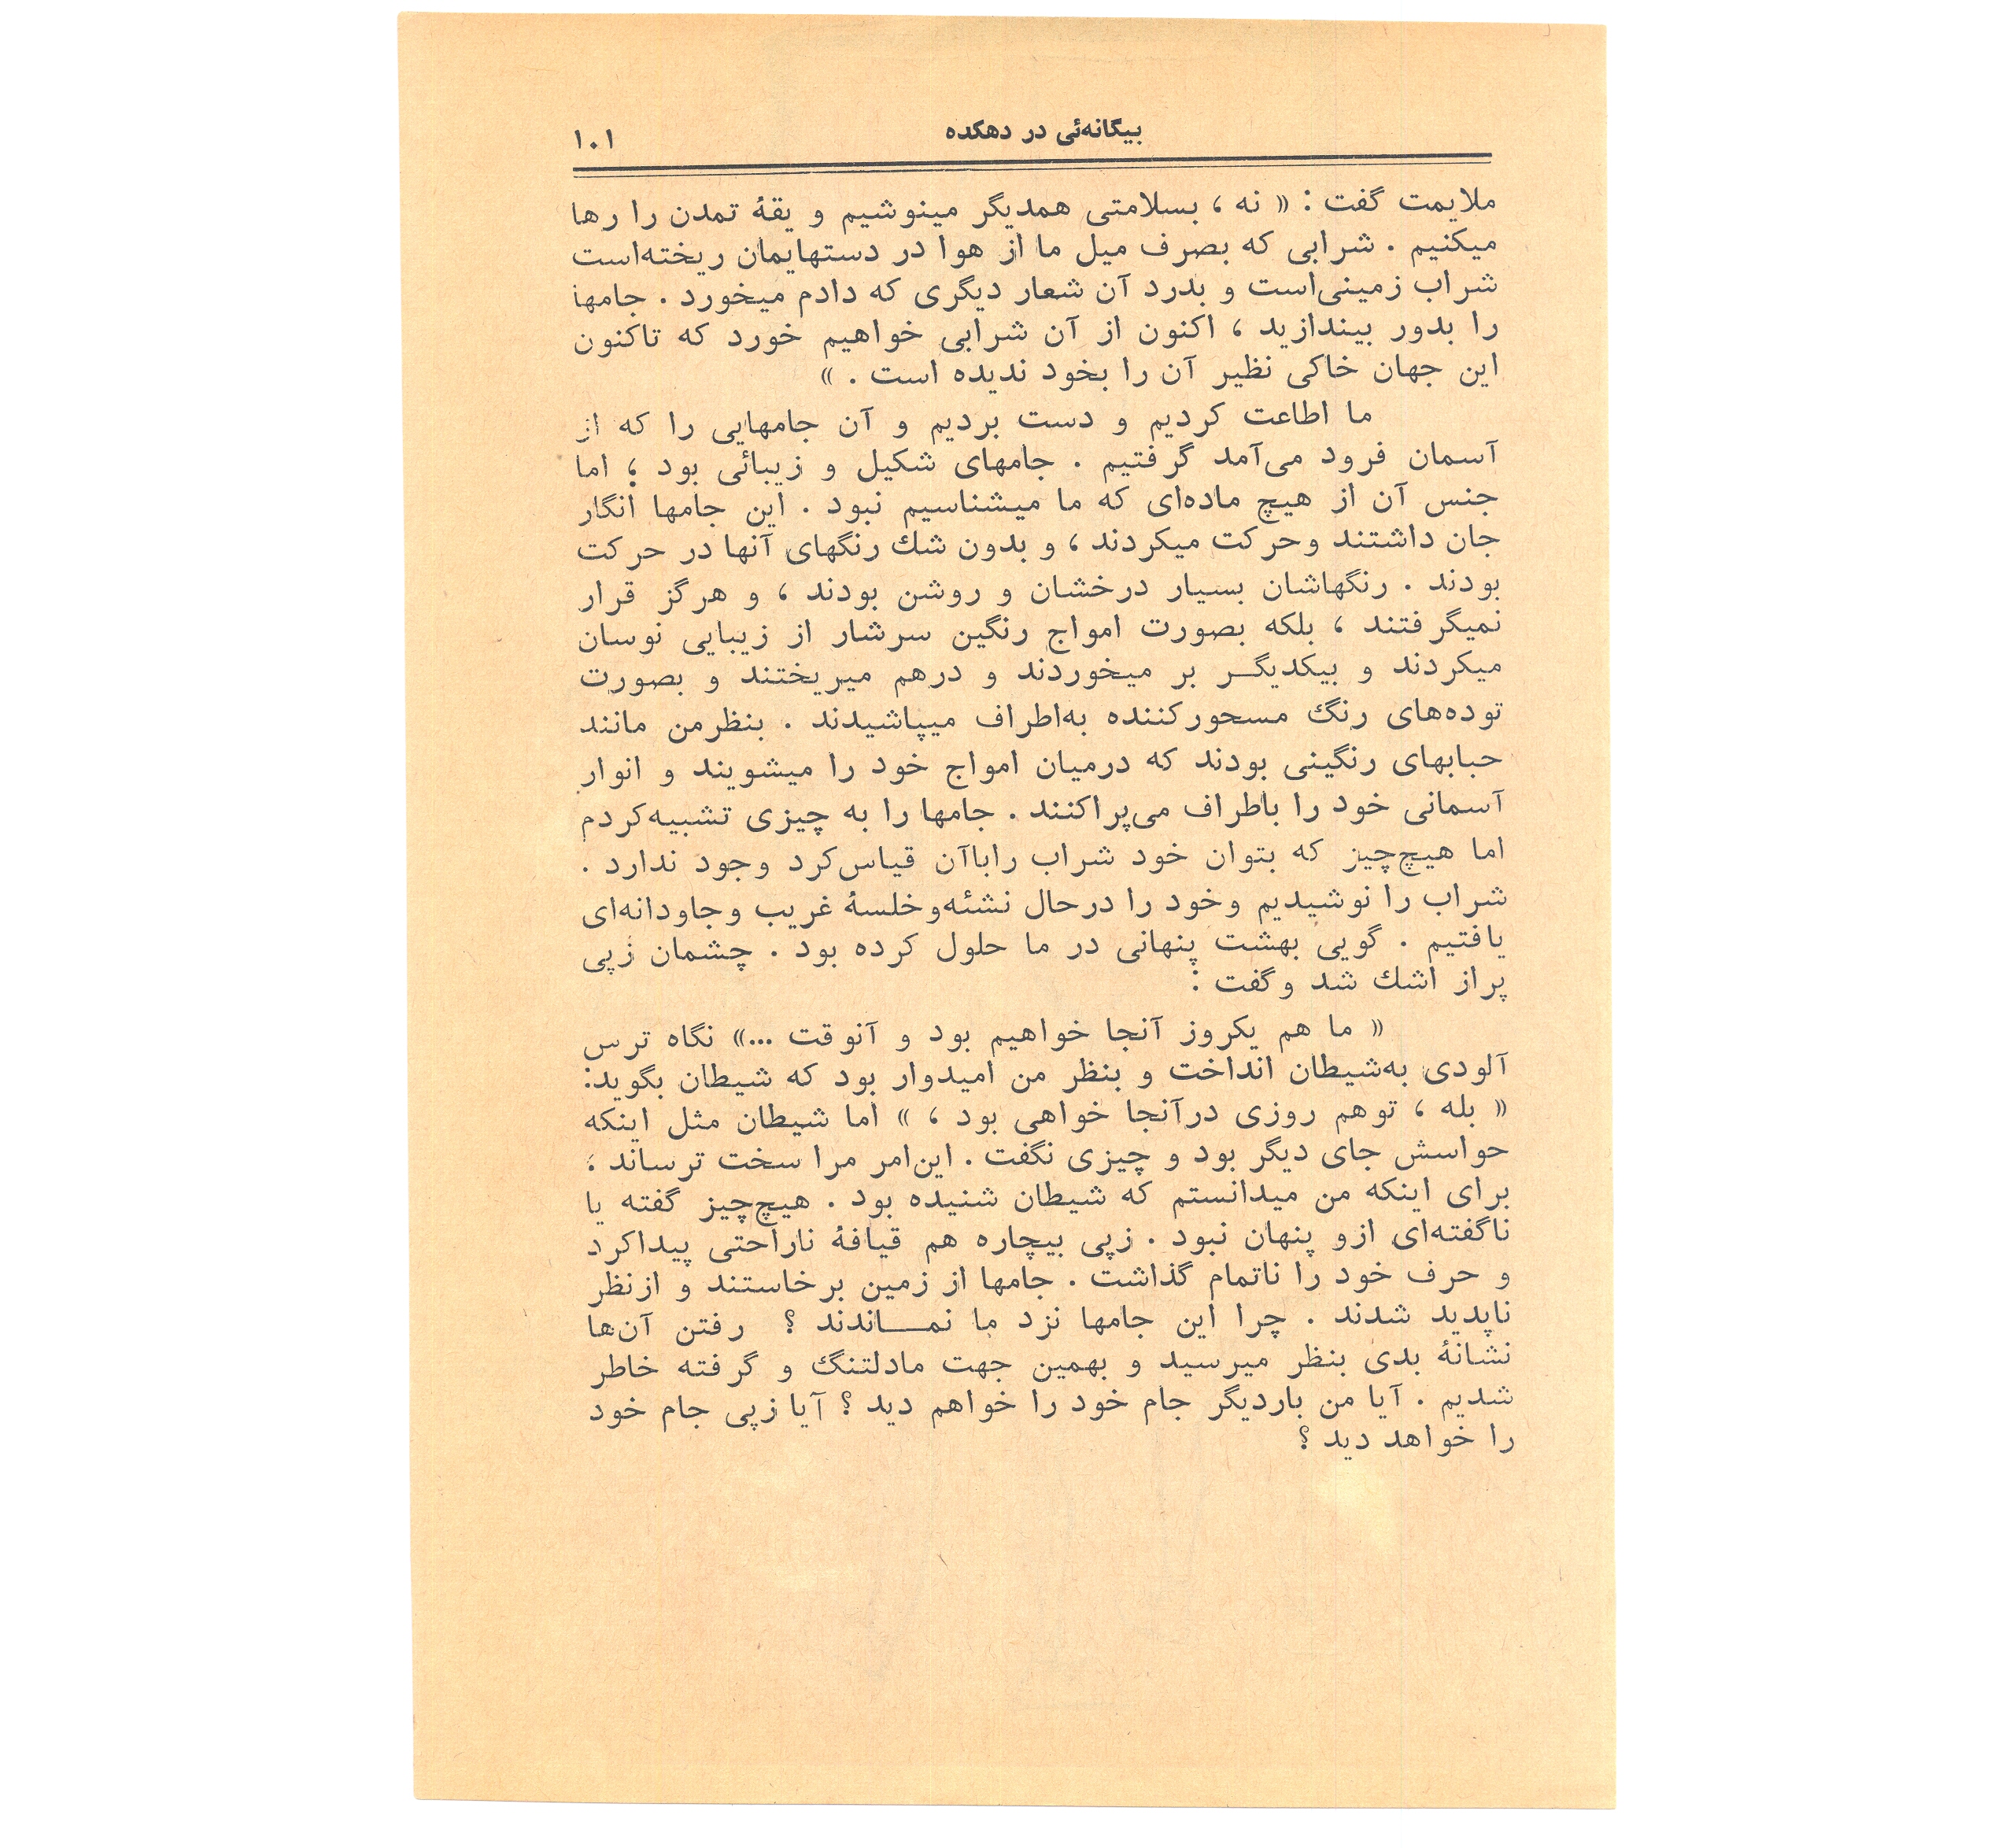 بیگانه‌ئی در دهکده
۱۰۱
ملایمت گفت : « نه ، بسلامتی همدیگر مینوشیم و یقهٔ تمدن را رها
میکنیم . شرابی که بصرف میل ما از هوا در دستهایمان ریخته‌است
شراب زمینی‌است و بدرد آن شعار دیگری که دادم میخورد . جامها
را بدور بیندازید ، اکنون از آن شرابی خواهیم خورد که تاکنون
این جهان خاکی نظیر آن را بخود ندیده است . »
ما اطاعت کردیم و دست بردیم و آن جامهایی را که از
آسمان فرود می‌آمد گرفتیم . جامهای شکیل و زیبائی بود ؛ اما
جنس آن از هیچ ماده‌ای که ما میشناسیم نبود . این جامها انگار
جان داشتند وحرکت میکردند ، و بدون شك رنگهای آنها در حرکت
بودند . رنگهاشان بسیار درخشان و روشن بودند ، و هرگز قرار
نمیگرفتند ، بلکه بصورت امواج رنگین سرشار از زیبایی نوسان
میکردند و بیکدیگـر بر میخوردند و درهم میریختند و بصورت
توده‌های رنگ مسحورکننده به‌اطراف میپاشیدند . بنظرمن مانند
حبابهای رنگینی بودند که درمیان امواج خود را میشویند و انوار
آسمانی خود را باطراف می‌پراکنند . جامها را به چیزی تشبیه‌کردم
اما هیچ‌چیز که بتوان خود شراب راباآن قیاس‌کرد وجود ندارد .
شراب را نوشیدیم وخود را درحال نشئه‌وخلسهٔ غریب وجاودانه‌ای
یافتیم . گویی بهشت پنهانی در ما حلول کرده بود . چشمان زپی
پراز اشك شد وگفت :
« ما هم یکروز آنجا خواهیم بود و آنوقت ...» نگاه ترس
آلودی به‌شیطان انداخت و بنظر من امیدوار بود که شیطان بگوید:
« بله ، توهم روزی درآنجا خواهی بود ، » اما شیطان مثل اینکه
حواسش جای دیگر بود و چیزی نگفت . این‌امر مرا سخت ترساند ؛
برای اینکه من میدانستم که شیطان شنیده بود . هیچ‌چیز گفته یا
ناگفته‌ای ازو پنهان نبود . زپی بیچاره هم قیافهٔ ناراحتی پیداکرد
و حرف خود را ناتمام گذاشت . جامها از زمین برخاستند و ازنظر
ناپدید شدند . چرا این جامها نزد ما نمـــاندند ؟ رفتن آن‌ها
نشانهٔ بدی بنظر میرسید و بهمین جهت مادلتنگ و گرفته خاطر
شدیم . آیا من باردیگر جام خود را خواهم دید ؟ آیا زپی جام خود
را خواهد دید ؟